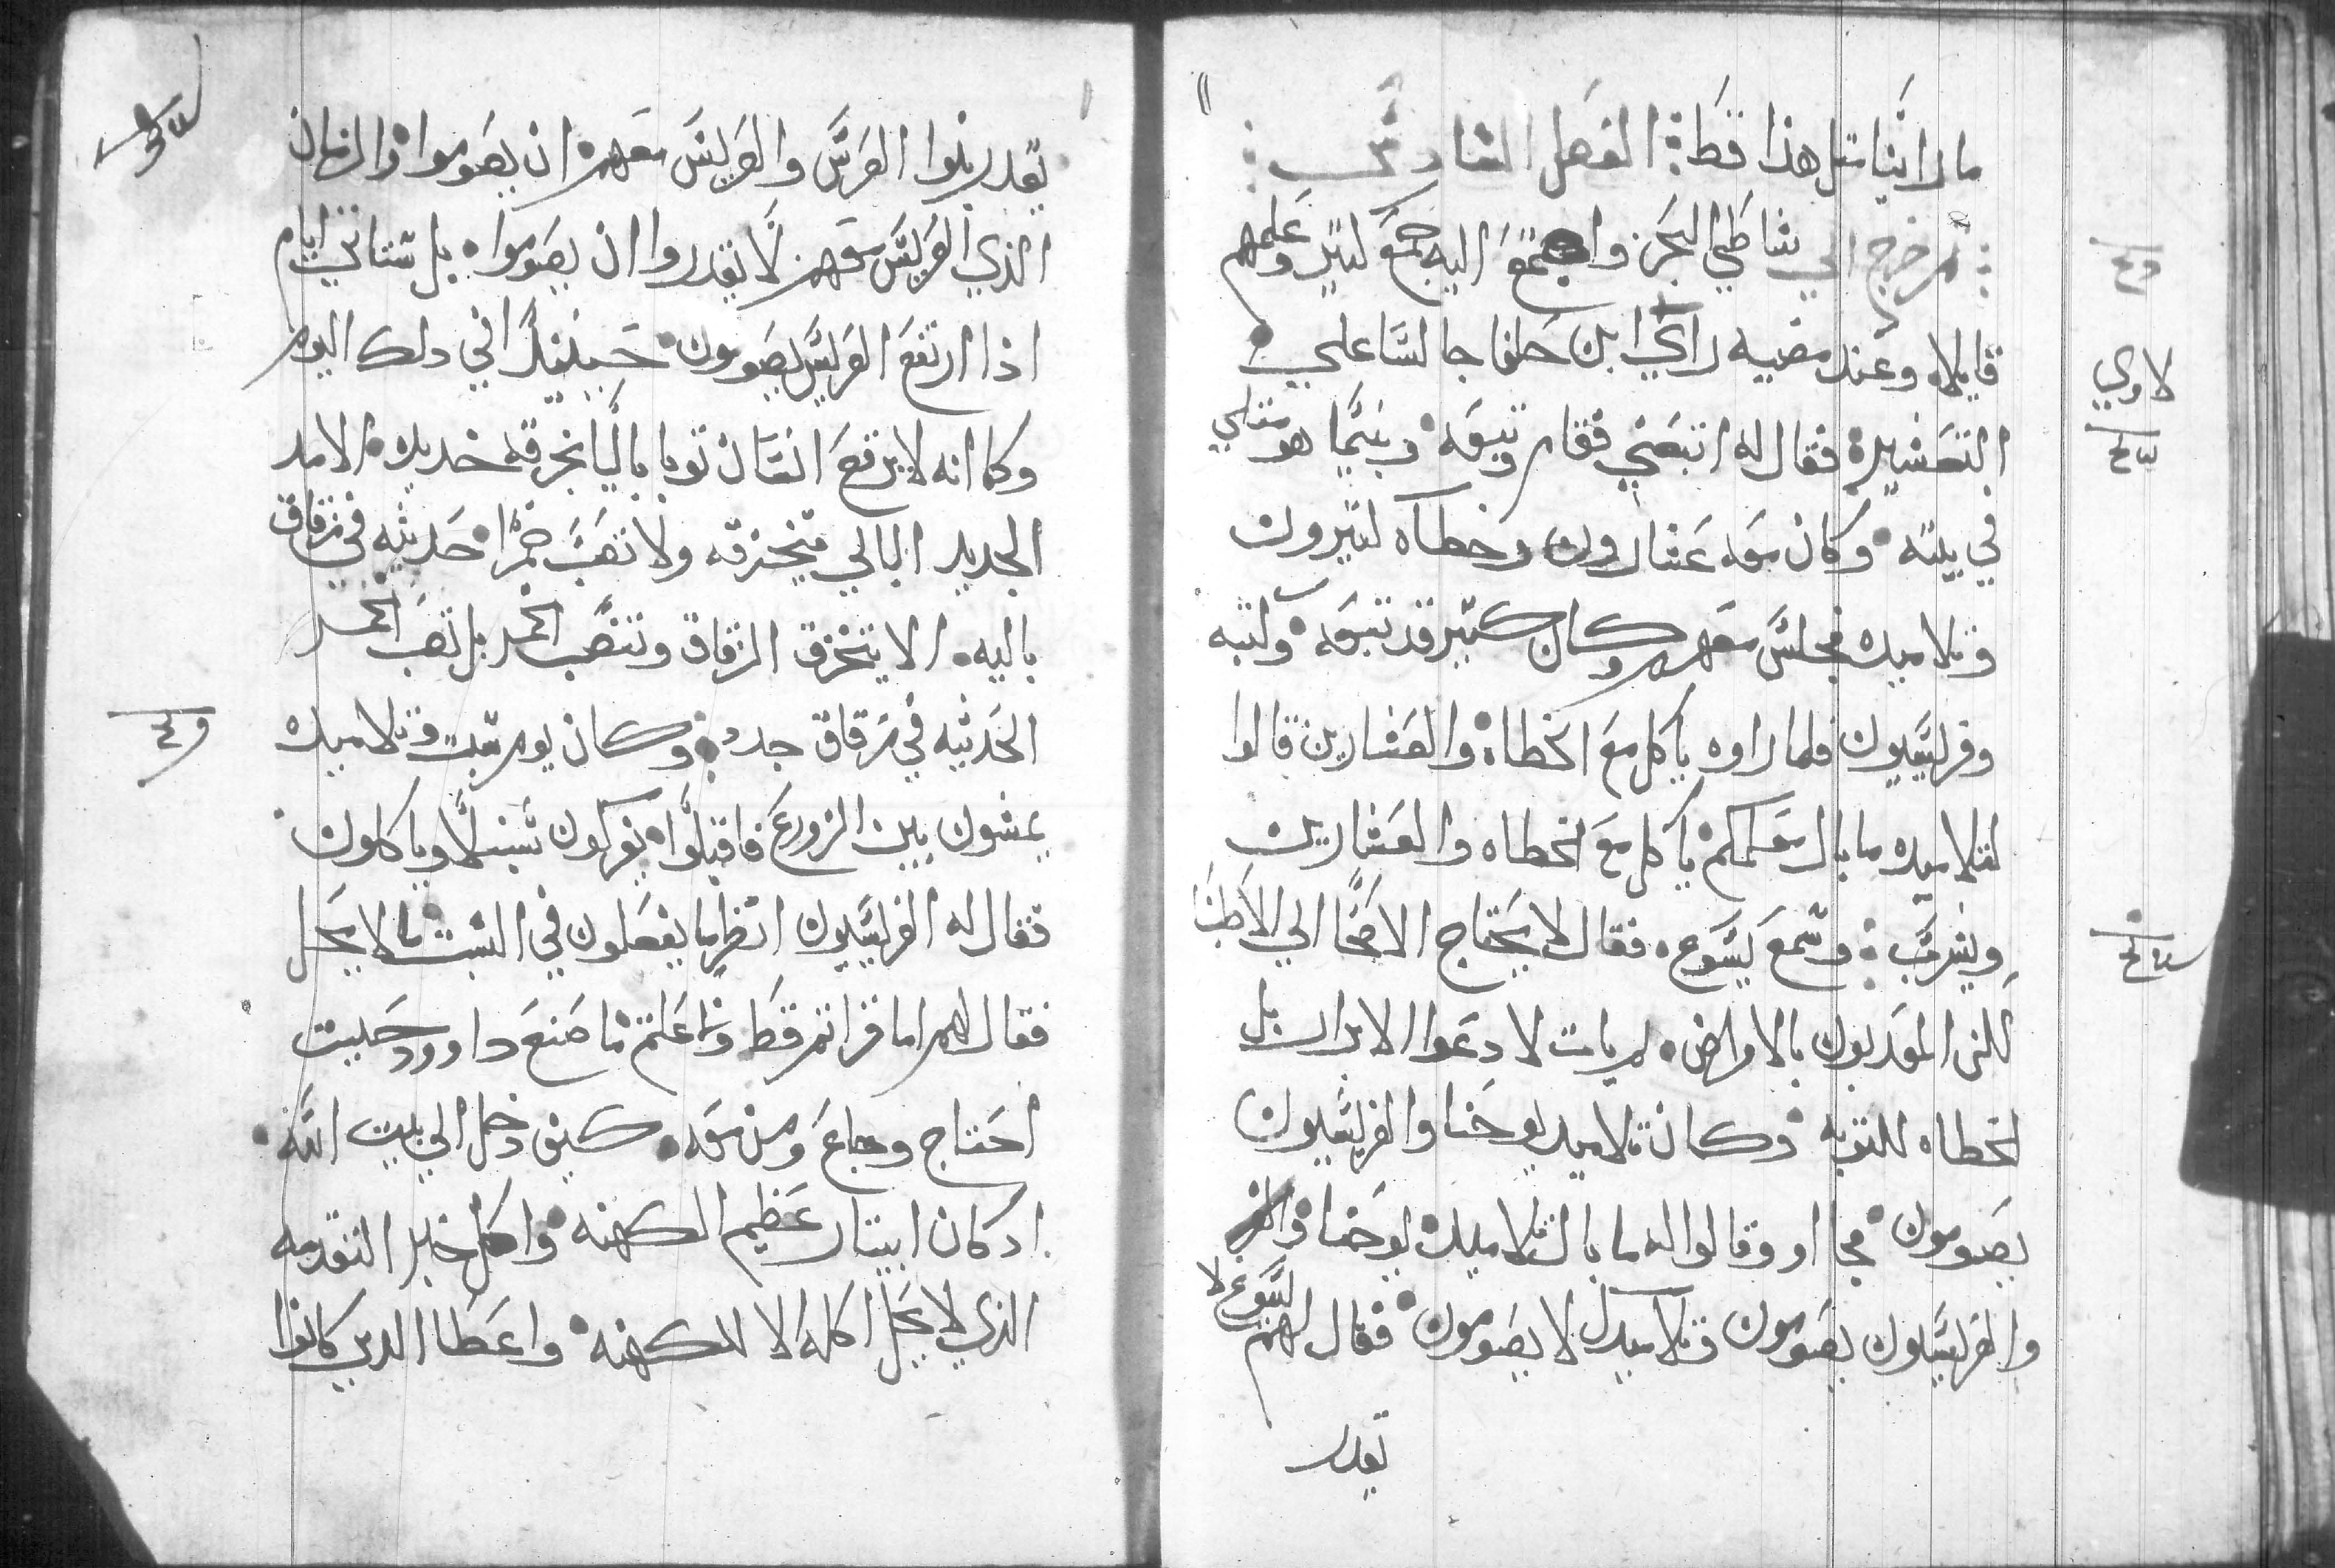 ما راينا مثل هذا قط: الفصل السادس:
ثم خرج الي شاطي البحر واجتمع اليه جمع كتير وعلمهم
قايلا وعند مضيه راي ابن حلفا جالسا علي
التعشير فقال له اتبعني فقام وتبعه وبينما هو متكي
في بيته وكان معه عشارون وخطاه كتيرون
وتلاميده فجلس معهم وكان كتير قد تبعه وكتبه
وفريسيون فلما راوه ياكل مع الخطاه والعشارين قالوا
لتلاميده ما بال معلمكم ياكل مع الخطاه والعشارين
ويشرب: وسمع يسوع فقال لا يحتاج الاصحا الي الاطبا
لكن المعدبون بالامراض لم يات لادعوا الابرار بل
الخطاه للتوبه وكان تلاميد يوحنا والفريسيون
يصومون فجااو وقالوا له ما بال تلاميد يوحنا
والفريسيون يصومون وتلاميدك لا يصومون فقال لهم يسوع لا
تقدر
تقدر بنوا العرس والعريس معهم ان يصوموا والزمان
الذي العريس معهم لا تقدروا ان يصوموا بل ستاتي ايام
اذا ارتفع العريس يصومون حينيدا في دلك اليوم
وكما انه لا يرقع انسان توبا باليا بخرقه جديده الا مد
الجديد البالي فتخرقه ولا تصب خمرا حديثه في زقاق
باليه الا يتخرق الزقاق وتنصب الخمر بل تصب الخمر
الحديثه في زقاق جدد وكان يوم سبت وتلاميده
يمشون بين الزروع فاقبلوا يفركون سنبلا وياكلون
فقال له الفريسيون انظر ما يفعلون في السبت ما لا يحل
فقال لهم اما قراتم قط وما علمتم ما صنع داوود حيت
احتاج وجاع ومن معه كيف دخل الي بيت الله
اد كان ابيتار عظيم الكهنه واكل خبز التقدمه
الذي لا يحل اكله الا للكهنه واعطا الدين كانوا